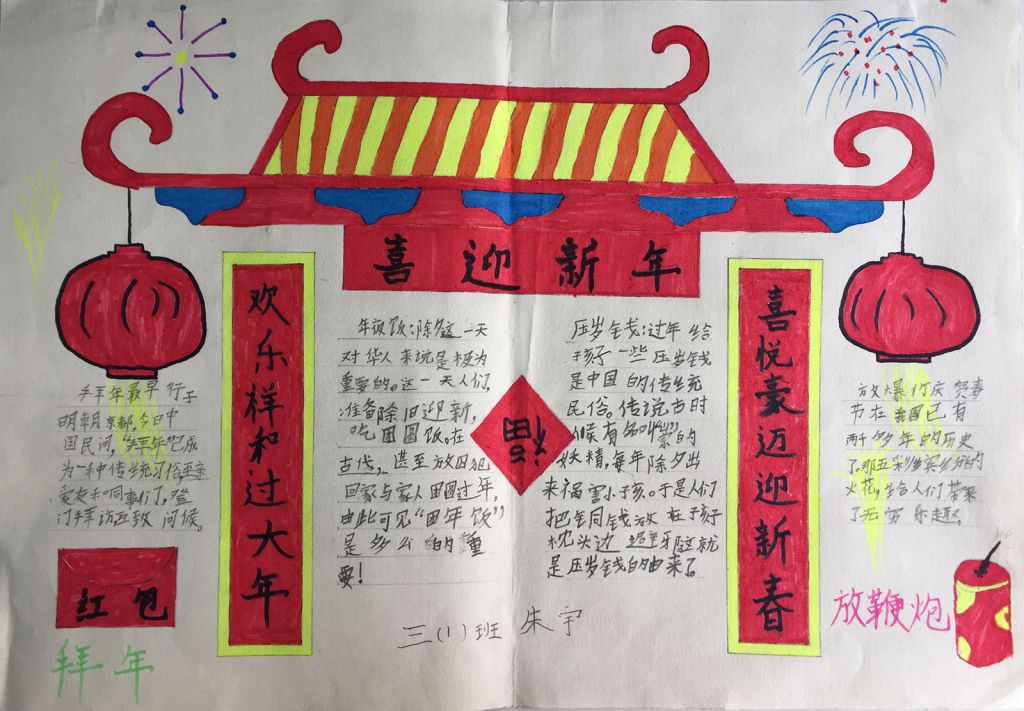 喜迎新年
欢乐祥和过大年
喜悦豪迈迎新春
福
拜年最早行于
明朝京都,今日中
国民间,“拜年”已成
为一种传统习俗,亲
爱友和同事们,登
门拜访互致问候。
红包
拜年
年夜饭:除夕这一天
对华人来说是极为
重要的。这一天人们,
准备除旧迎新,
吃团圆饭。在
古代,甚至放囚犯
回家与家人团圆过年,
由此可见“团年饭”
是多么的重
要!
压岁钱:过年给
孩子一些压岁钱
是中国的传统
民俗。传说古时
候有的
妖精,每年除夕出
来祸害小孩。于是人们
把铜钱放在孩子
枕头边,这就
是压岁钱的由来了。
放爆竹庆贺春
节在我国已有
两千多年的历史
了。那五彩缤纷的
火花,给人们带来
了无穷乐趣。
放鞭炮
三(1)班 朱宇